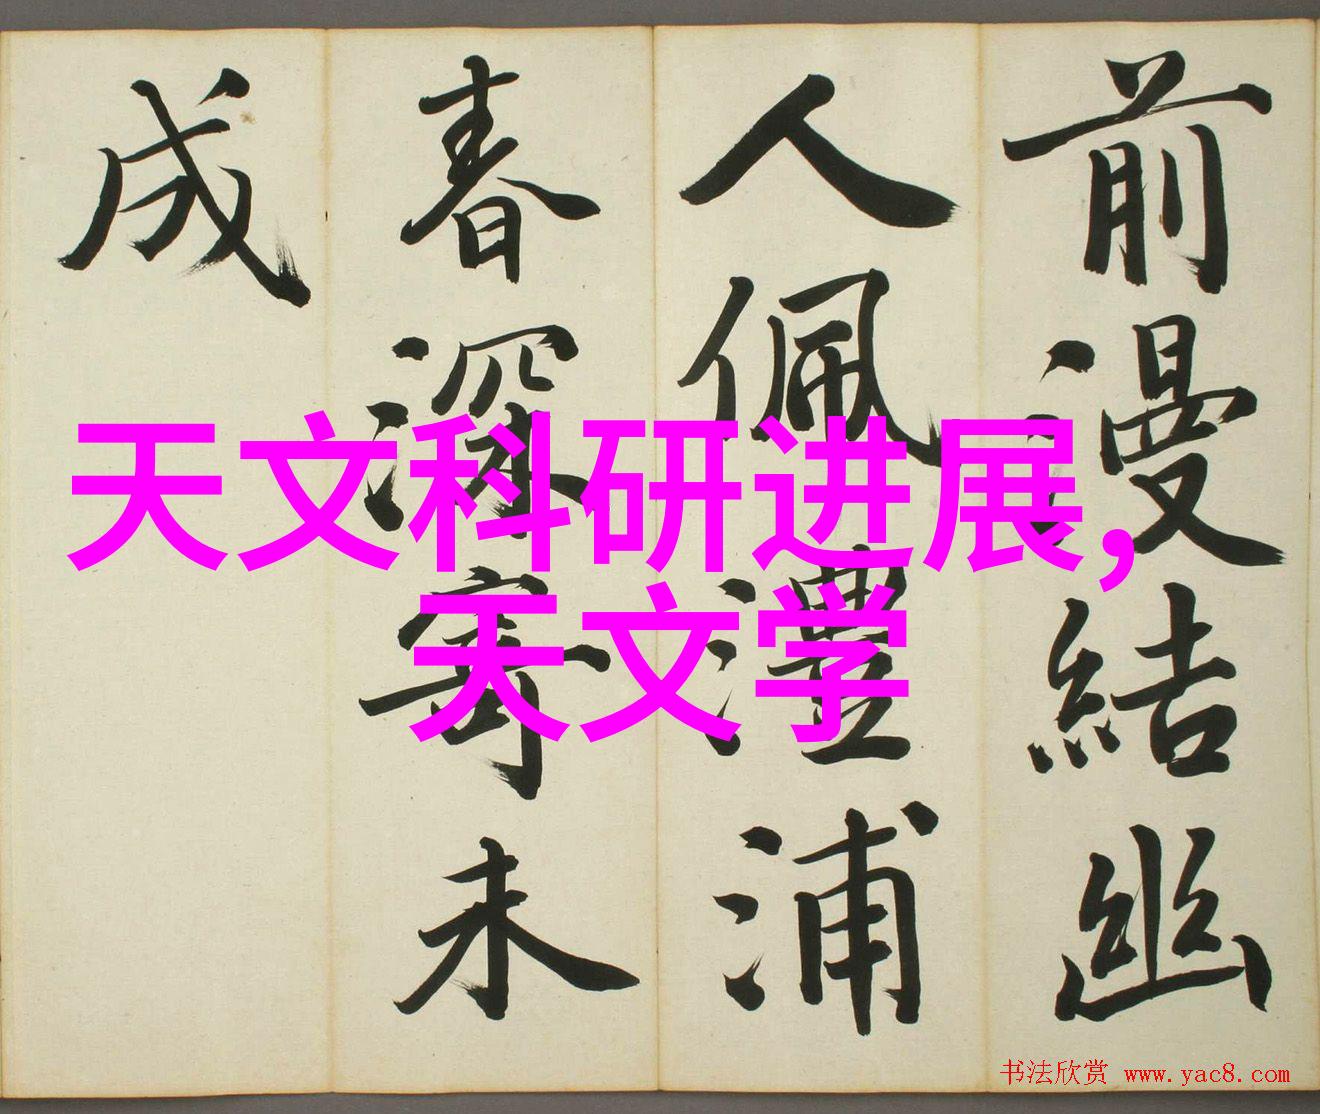 前漫結幽
人佩澧浦
春深寄未
成
天文科研进展,
天文学
书法欣赏 www.yac8.com